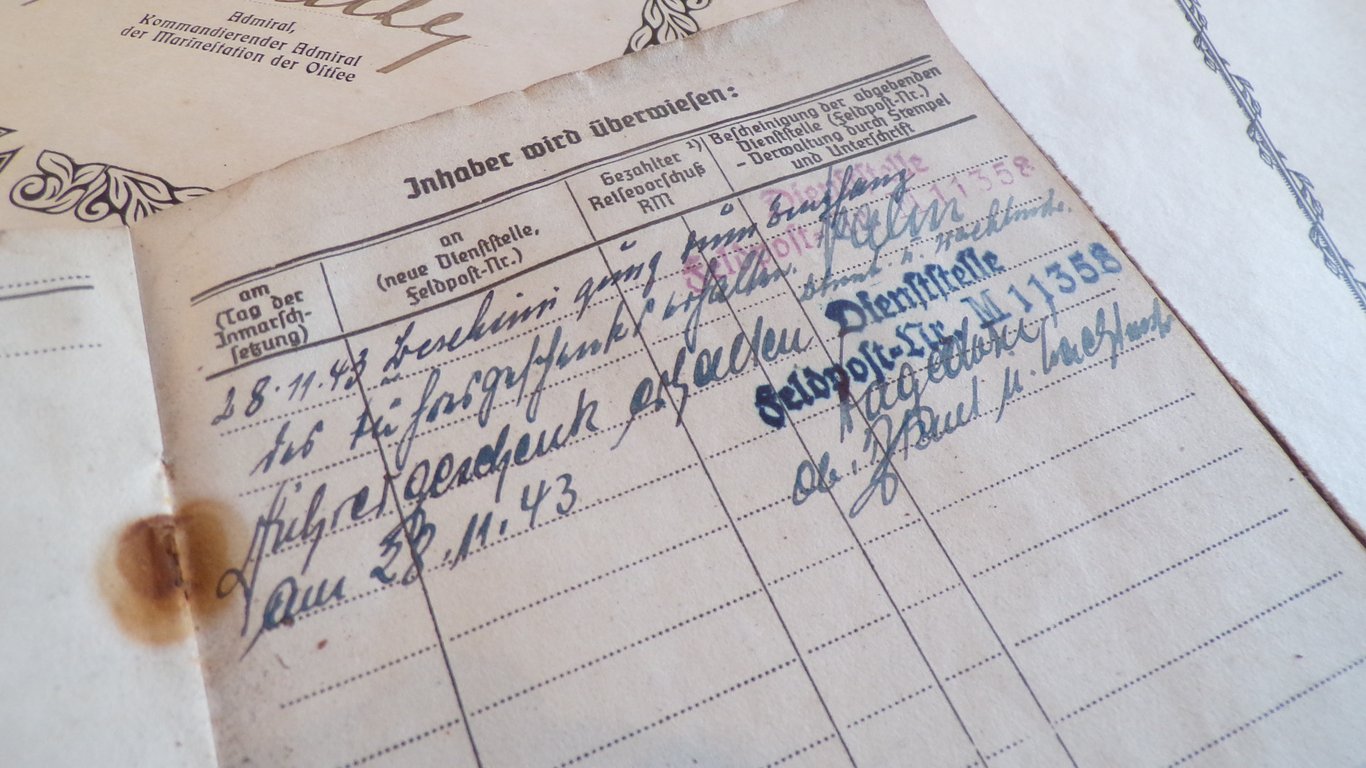 Admiral,
Kommandierender Admiral
der Marineſtation der Oſtſee
Inhaber wird überwieſen:
am
(Tag der
Inmarſch-
ſetzung)
an
(neue Dienſtſtelle,
Feldpoſt-Nr.)
Gezahlter ¹)
Reiſevorſchuß
RM
Beſcheinigung der abgebenden
Dienſtſtelle (Feldpoſt-Nr.)
- Verwaltung durch Stempel
und Unterſchrift
Dienſtſtelle
Feldpoſt-Nr. M 11358
28.11.43 Bescheinigung zum Empfang
des Führergeschenks erhalten.
Dienſtſtelle
Feldpoſt-Nr. M 11358
Führergeschenk erhalten
am 28.11.43